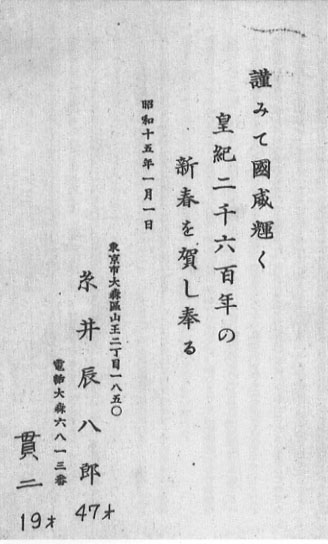 謹みて國威輝く
皇紀二千六百年の
新春を賀し奉る
昭和十五年一月一日
東京市大森區山王二丁目一八五〇
糸井辰八郎
47才
電話大森六八一三番
貫二
19才